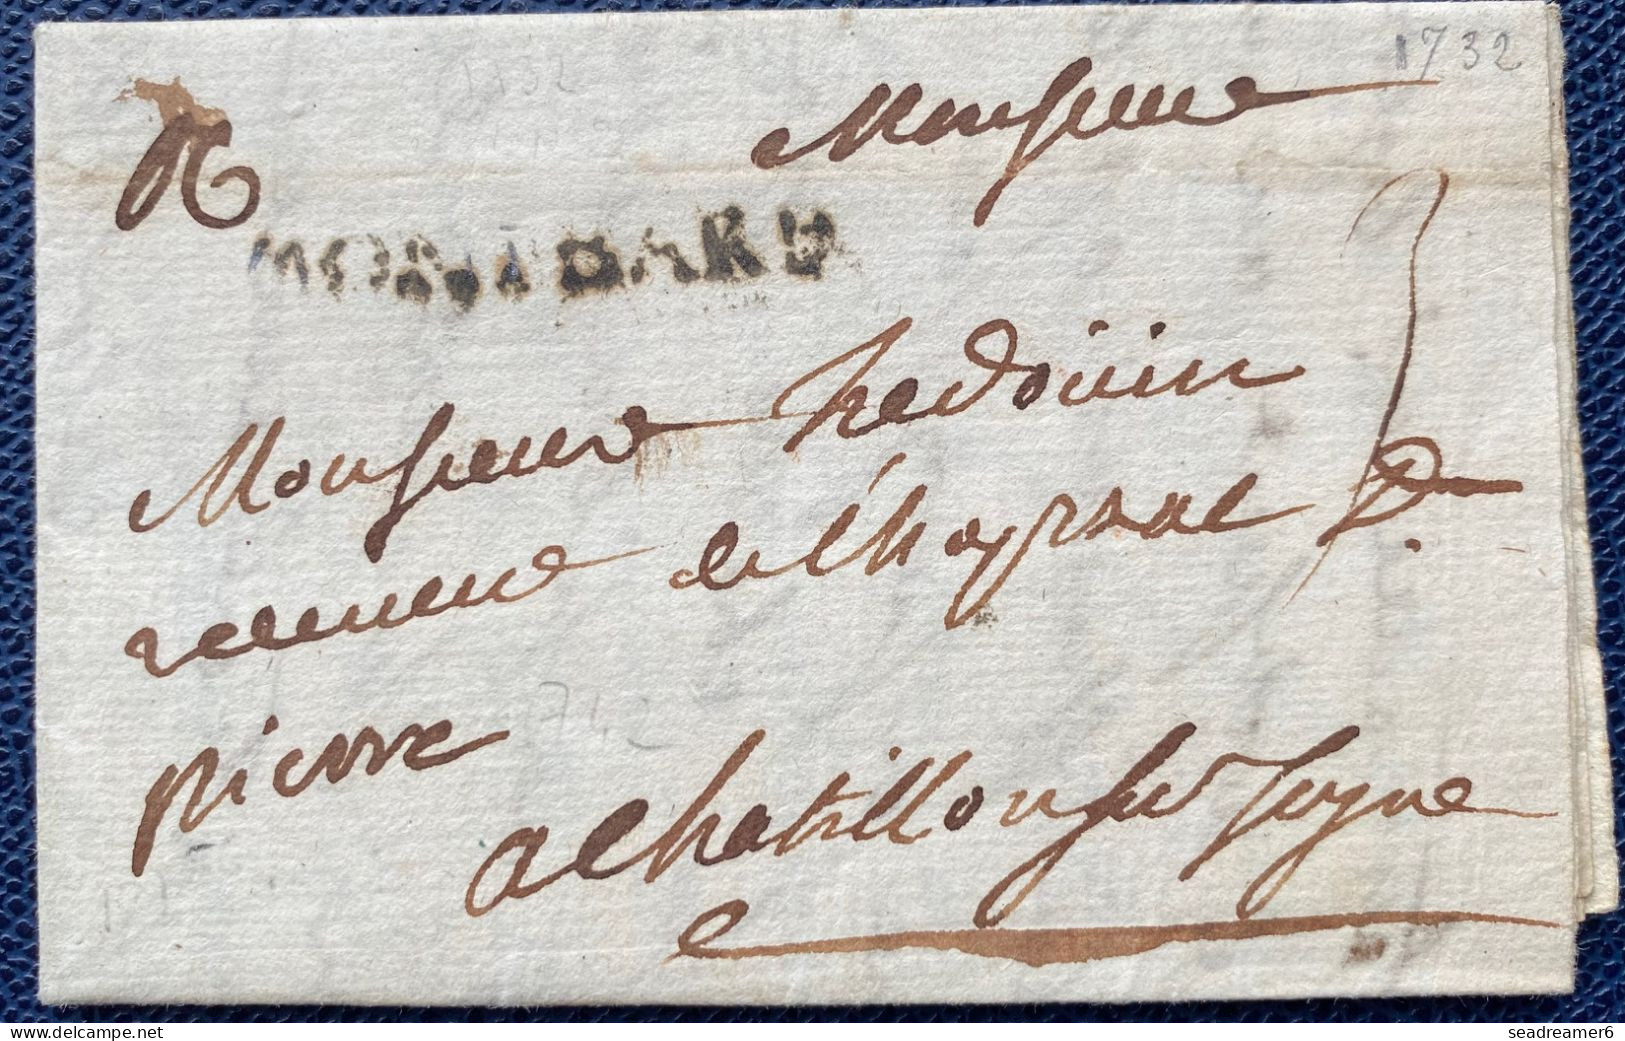 1732
1732
Monsieur
MONTBARD
Monsieur hedouin
receveur de l'hopital St
pierre
742
a Chatillon sur Seyne
seadreamer6
www.delcampe.net